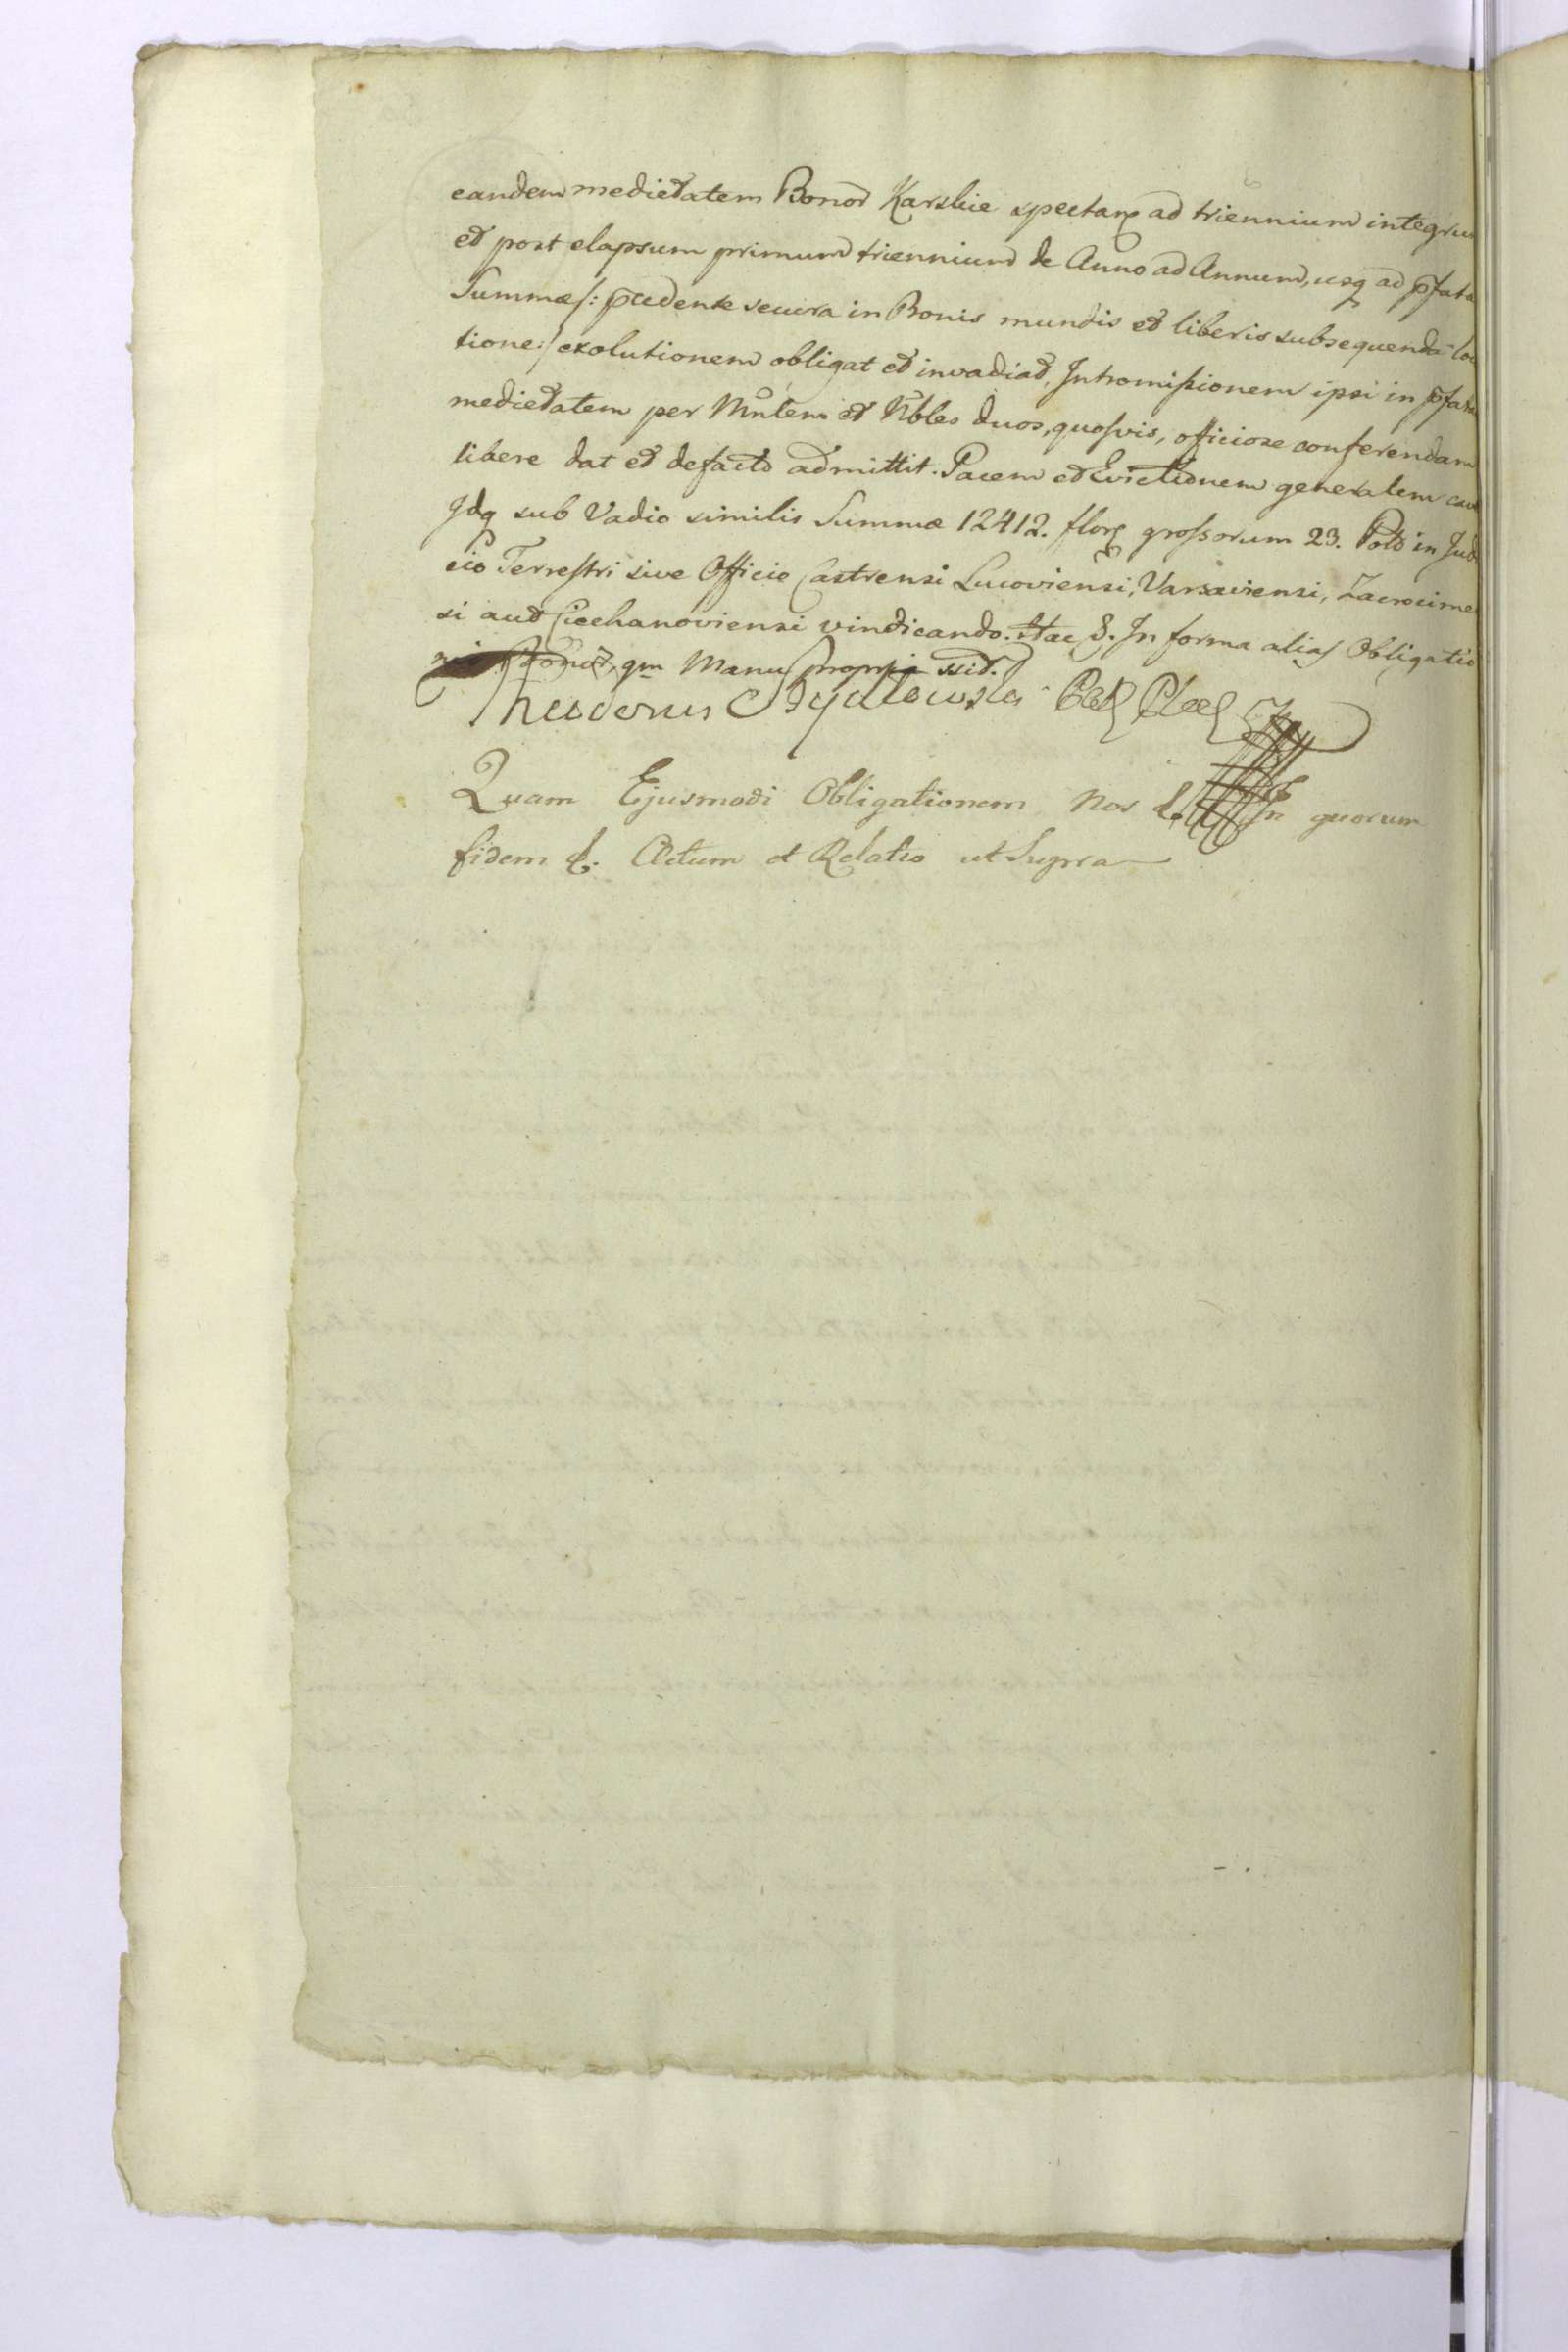 eandem medietatem Bonor Karskie spectan ad triennium integrum
et post elapsum primum triennium de Anno ad Annum, usq ad pfata
Summæ /: pcedente secura in Bonis mundis et liberis subsequenda loca
tione :/ exolutionem obligat et invadiat, Intromissionem ipsi in pfata
medietatem per Mntem et Nbles duos, quosvis, officiose conferendam
libere dat et de facto admittit. Pacem et Evictionem generalem cav
Idq sub Vadio similis Summæ 12412. flor grossorum 23. Pol in Jud
cio Terrestri sive Officio Castrensi Lucoviensi, Varsaviensi, Zacrocime
si aut Ciechanoviensi vindicando. Hac &. In forma alias Obligatio
qm Manu propria ssit.
Theodorus
Quam Ejusmodi Obligationem Nos &. In quorum
fidem &. Actum et Relatio ut Supra